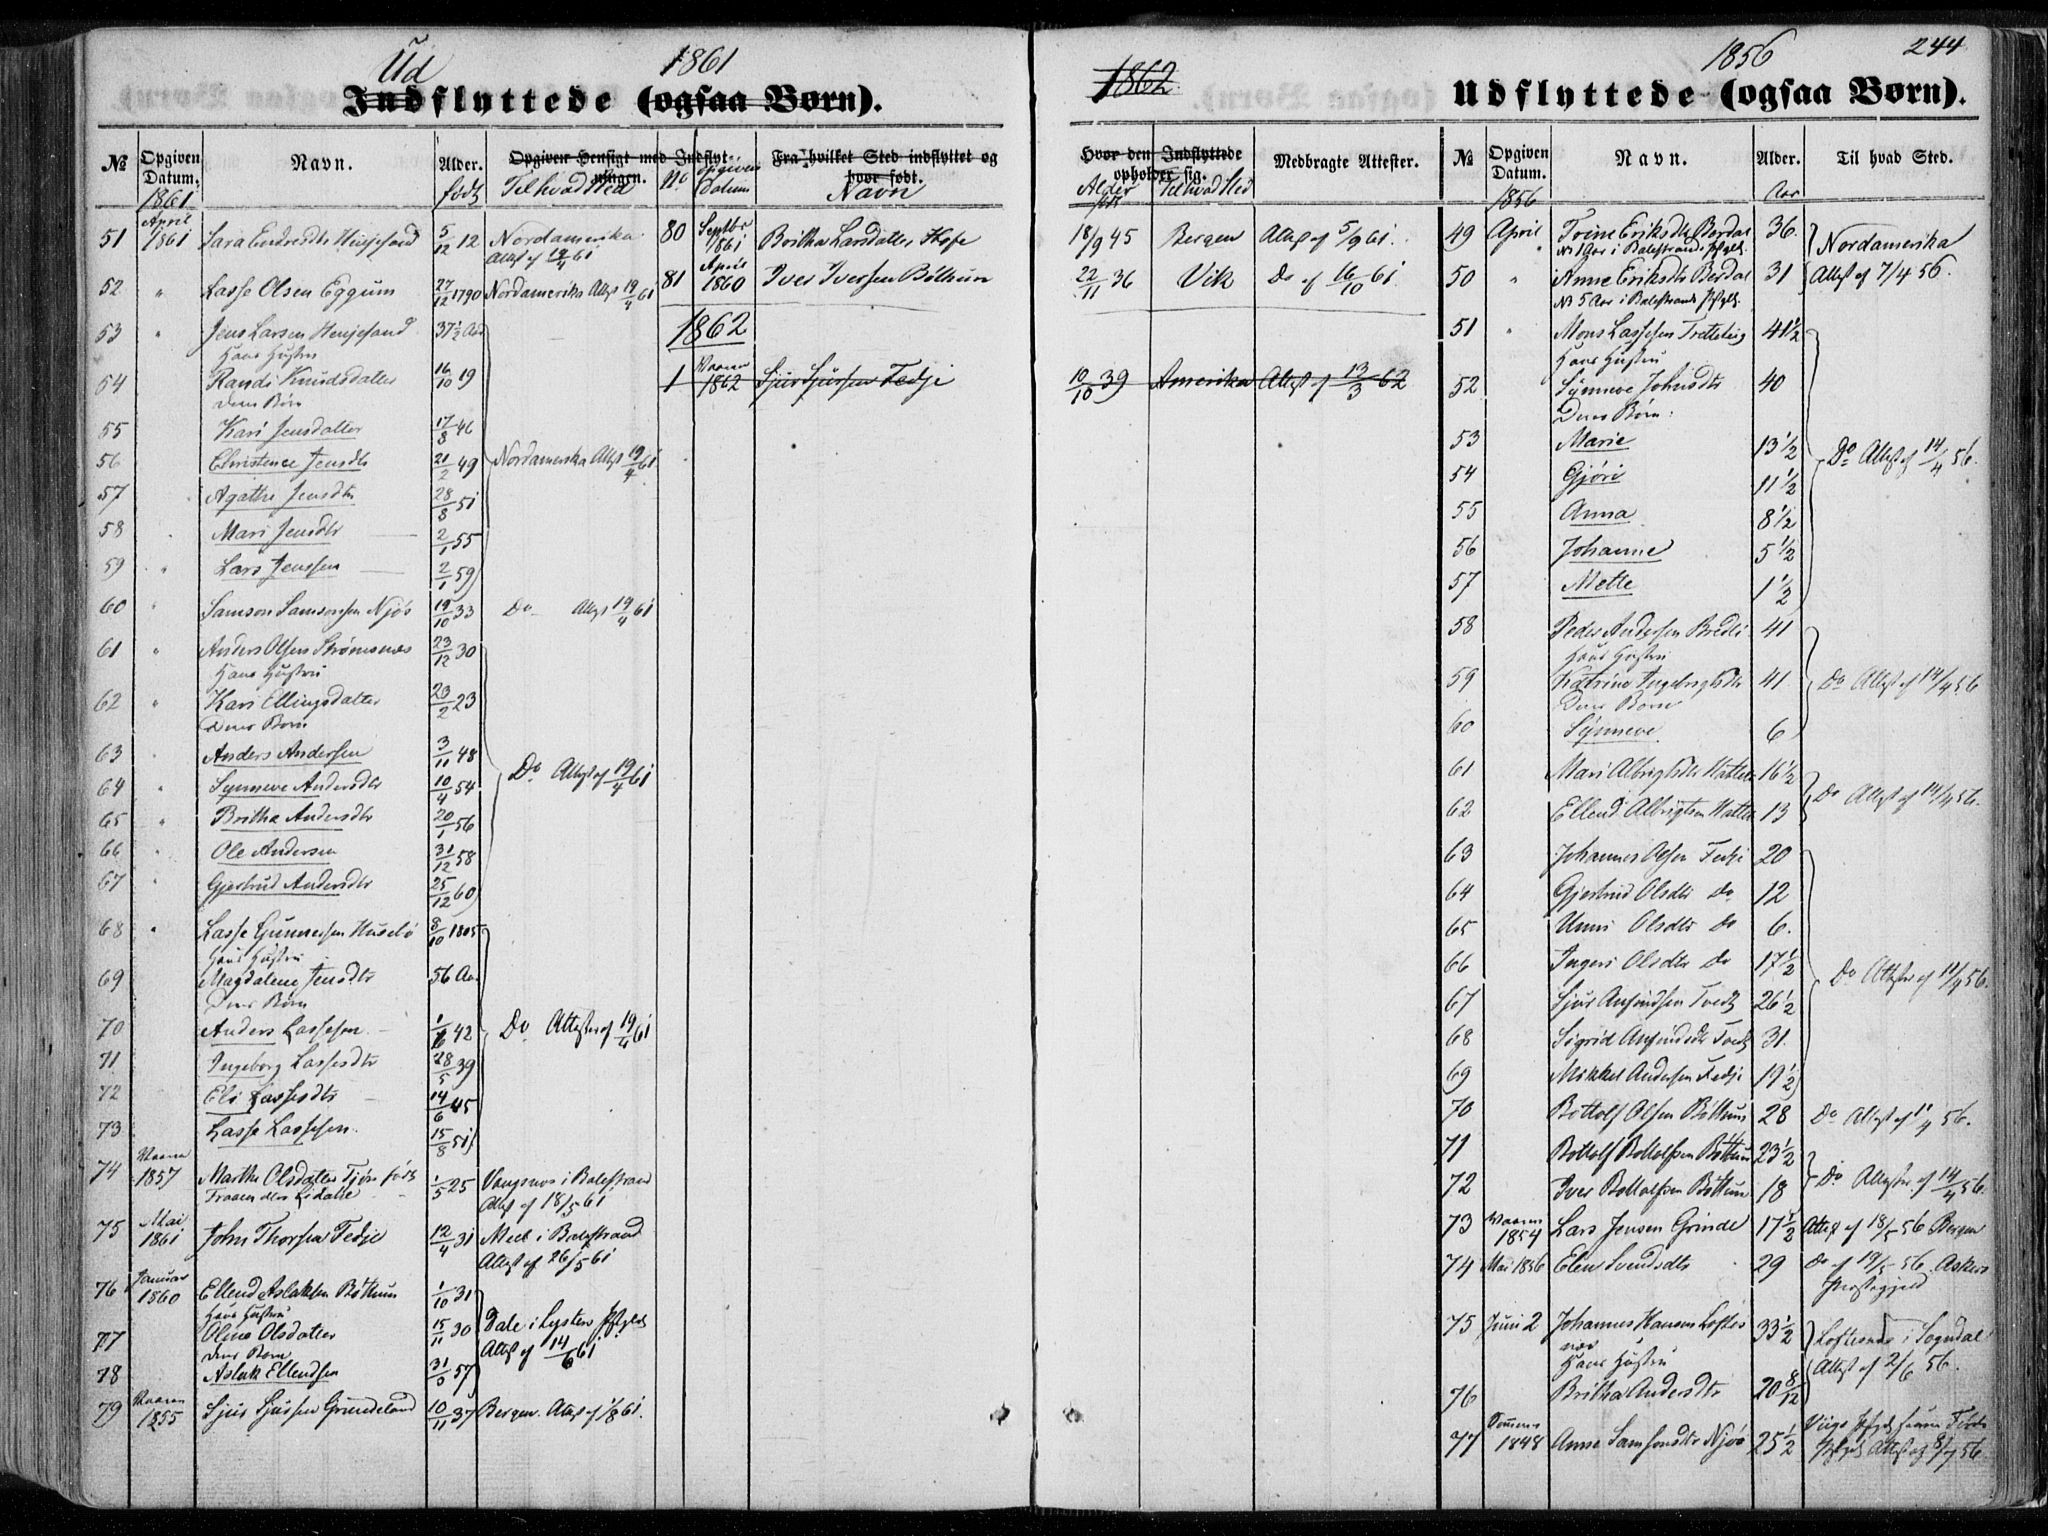 Ud 1861
Indflyttede (ogsaa Børn).
№ Opgiven Datum. Navn. Alder. Opgiven Hensigt med Indflytningen. Fra hvilket Sted indflyttet og hvor født.
1861 født Til hvad Sted No Opgiven Datum Navn
51 April 1861 Sara Endresdtr Henjesand 5/12 12 Nordamerika
Attest af 19/4 61
52 " Lasse Olsen Eggum 27/12 1790 Nordamerika Attest 19/4 61
53 " Jens Larsen Henjesand 37 1/2 Aar
Hans Hustru
54 Randi Knudsdatter 16/10 19
Deres Børn
55 Kari Jensdatter 17/8 46
56 Christence Jensdtr 21/2 49 Nordamerika Attest 19/4 61
57 Agathe Jensdtr 28/8 51
58 Mari Jensdtr 2/1 55
59 " Lars Jenssen 2/1 59
60 " Samson Samsonsen Njøs 19/10 33 Do Attest 19/4 61
61 " Anders Olsen Strømsnæs 23/12 30
Hans Hustru
62 " Kari Ellingsdatter 23/2 23
Deres Børn
63 Anders Andersen 3/11 48
64 " Synneve Andersdtr 10/4 54 Do Attest af 19/4 61
65 " Britha Andersdtr 20/1 56
66 " Ole Andersen 31/12 58
67 " Gjertrud Andersdtr 25/12 60
68 " Lasse Gunnersen Husebø 8/10 1805
Hans Hustru
69 Magdalene Jensdtr 56 Aar
Deres Børn
70 Anders Lassesen 42 Do Attester af 19/4 61
71 Ingeborg Lassesdtr 28/5 39
72 Eli Lassesdtr 14/6 45
73 Lasse Lassesen 15/8 51
74 Vaaren 1857 Marthe Olsdatter født 1/5 25 Vangsnes i Balestrand
Attest af 18/5 61
75 Mai 1861 John Thorsen Fedje 12/4 31 Meel i Balestrand
Attest af 26/5 61
76 Januar 1860 Ellend Aslaksen Bøthun 1/10 31
Hans Hustru
77 Oline Olsdatter 15/11 30 Dale i Lyster Pstgld
Deres Børn Attest af 14/6 61
78 Aslak Ellendsen 57
79 Vaaren 1855 Sjur Sjursen Grindeland 10/11 37 Bergen. Attest af 1/8 61.
80 Septbr 1861 Britha Larsdatter Hofe
81 April 1860 Iver Iversen Bøthun
1862
1 Vaaren 1862 Sjur Sjursen Fedje
1862
Hvor den Indflyttede opholder sig. Medbragte Attester.
Alder født Til hvad Sted
18/9 45 Bergen Attest af 5/9 61.
22/11 36 Vik Do af 16/10 61.
10/10 39 Amerika Attest af 13/3 62
1856 244
Udflyttede (ogsaa Børn).
№ Opgiven Datum. Navn. Alder. Til hvad Sted.
1856 Aar
49 April Trine Eriksdtr Berdal 36 Nordamerika
NB 1 Aar i Balestrands Pstgld.
50 " Anne Eriksdtr Berdal 31 Attest af 7/4 56.
NB 5 Aar i Balestrands Pstgld.
51 " Mons Lassesen Tretteteig 41 1/2
Hans Hustru
52 Synneve Johnsdtr 40
Deres Børn:
53 Marie 13 1/2 Do Attest af 14/4 56.
54 Gjøri 11 1/2
55 Anna 8 1/2
56 Johanne 5 1/2
57 Mette 1 1/2
58 Peder Andersen 41
Hans Hustru
59 Katrine Ingebrigtsdtr 41 Do Attest af 14/4 56
Deres Børn
60 Synneve 6
61 Mari Albrigtsdtr 16 1/2 Do Attest af 14/4 56.
62 Ellend Albrigtsen 13
63 Johannes Olsen Fedje 20
64 Gjertrud Olsdtr do 12
65 Unni Olsdtr do 6.
66 Ingeri Olsdtr do 17 1/2 Do Attester af 11/4 56.
67 Sjur Amundsen Tvedt 26 1/2
68 Sigrid Amundsdtr Tvedt 31.
69 Mikkel Andersen Fedje 19 1/2
70 Bottolf Olsen Bøthun 28 Do Attest af 11/4 56.
71 Bottolf Bottolfsen Bøthun 23 1/2
72 Iver Bottolfsen Bøthun 18 Do Attester af 14/4 56.
73 Vaaren 1854 Lars Jensen Grinde 17 1/2 Attest af 18/5 56 Bergen
74 Mai 1856 Elen Svendsdtr 29 Do af 19/5 56. Askers
Præstegjeld
75 Juni 2 Johannes Hansen Loftesnæs 33 1/2 Loftesnæs i Sogndal
Hans Hustru Attest af 2/6 56.
76 Britha Andersdtr 20 8/12
77 1848 Anne Samsonsdtr Njøs 25 1/2 Viigs Pstgld
Attest af 8/7 56.